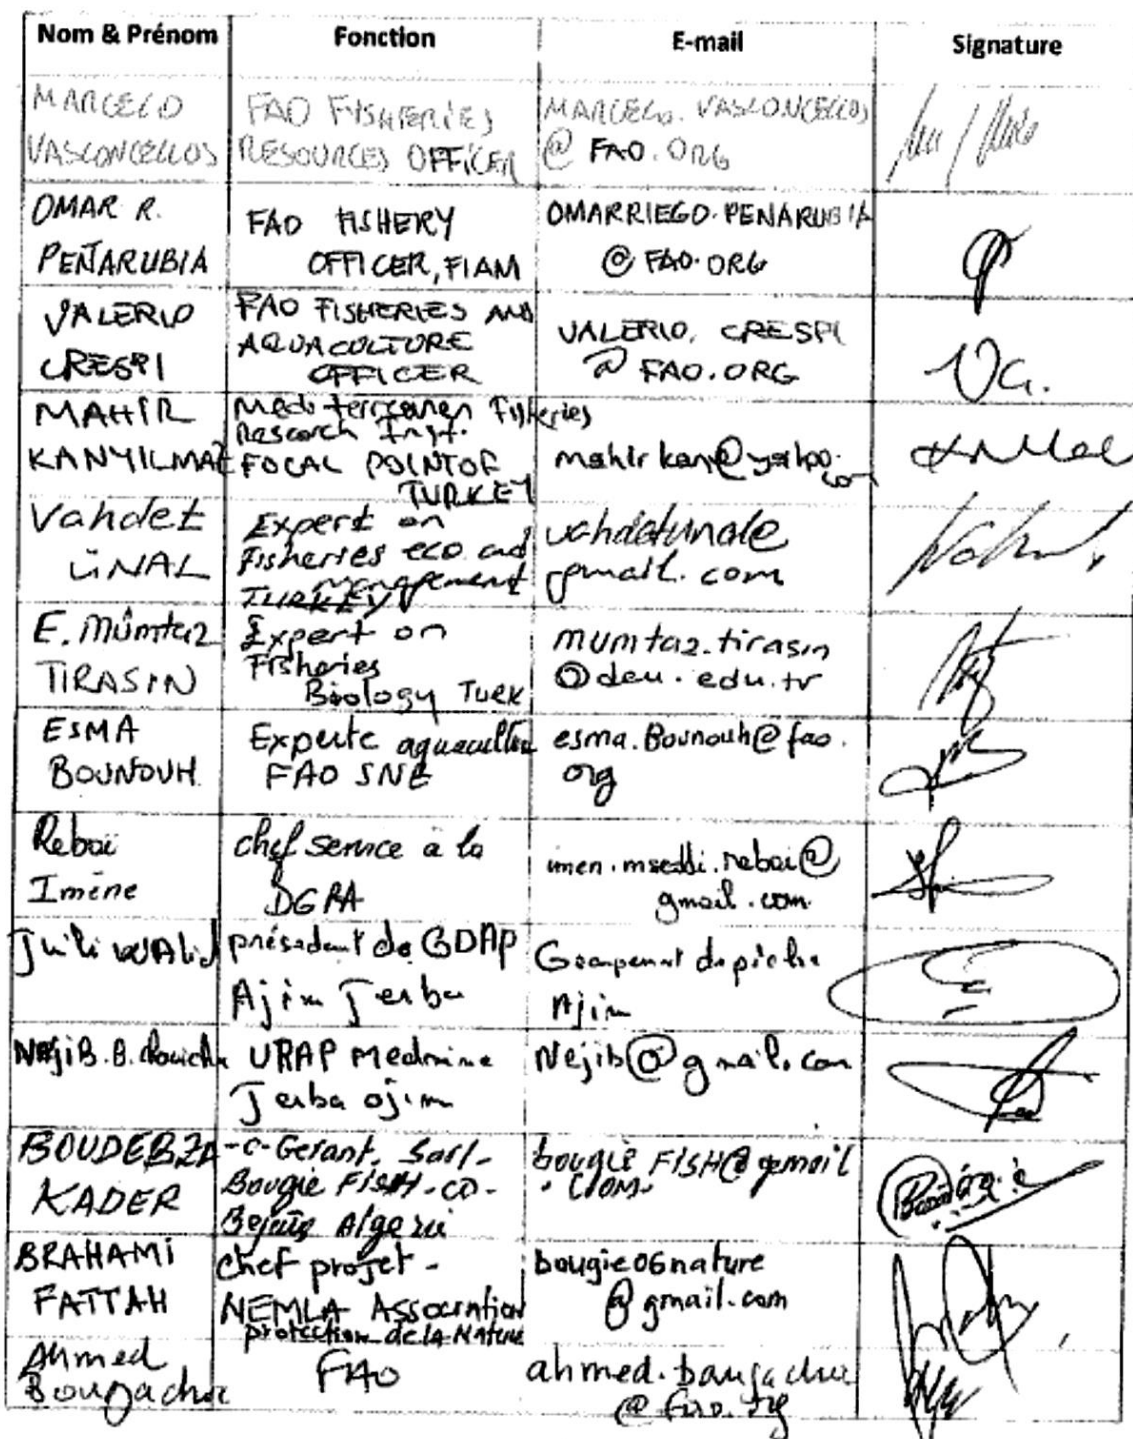 Nom & Prénom Fonction E-mail Signature
MARCELO
VASCONCELLOS
FAO FISHERIES
RESOURCES OFFICER
MARCELO. VASCONCELLOS
@ FAO.ORG
OMAR R.
PEÑARUBIA
FAO FISHERY
OFFICER, FIAM
OMARRIEGO.PENARUBIA
@ FAO.ORG
VALERIO
CRESPI
FAO FISHERIES AND
AQUACULTURE
OFFICER
VALERIO. CRESPI
@ FAO.ORG
MAHIR
KANYILMAZ
Mediterranean Fisheries
Research Inst.
FOCAL POINT OF
TURKEY
mahirkan@yahoo.
com
Vahdet
ÜNAL
Expert on
Fisheries eco and
management
TURKEY
vahdetunal@
gmail.com
E. Mümtaz
TIRASIN
Expert on
Fisheries
Biology Turk
mumtaz.tirasin
@deu.edu.tr
ESMA
BOUNOUH
Experte aquaculture
FAO SNE
esma.Bounouh@fao.
org
Rebai
Imène
chef service à la
DGPA
imen.mseddi.rebai@
gmail.com
walid
président de GDAP
Ajim Jerba
Ajim
NejiB.B.
URAP Mednine
Jerba ajim
Nejib@gmail.com
BOUDEBZA
KADER
-c-Gerant. Sarl-
Bougie FISH-co-
Bejaia Algerie
bougie FISH@gmail
.COM.
BRAHAMI
FATTAH
chef projet -
NEMLA Association
protection de LA Nature
bougie06nature
@gmail.com
Ahmed
FAO